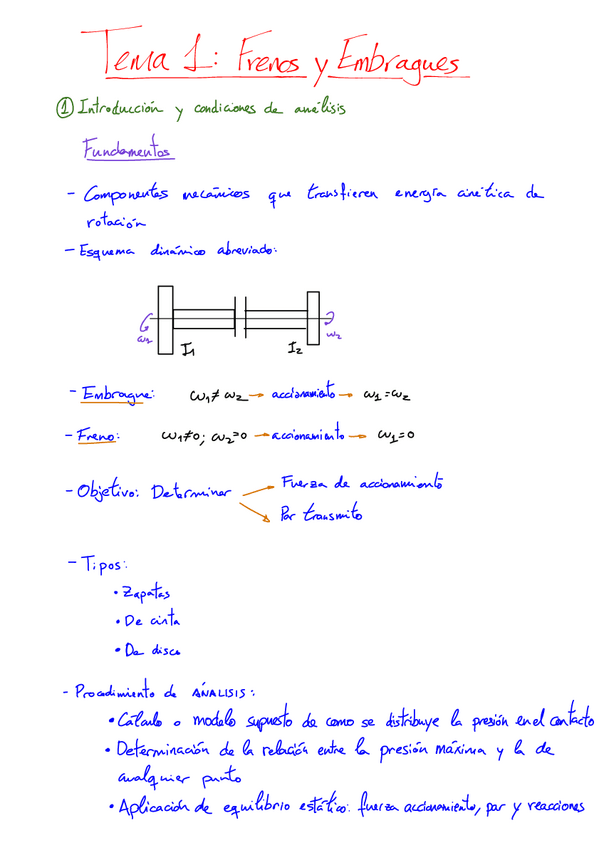 Tema 1: Frenos y Embragues
① Introducción y condiciones de análisis
Fundamentos
- Componentes mecánicos que transfieren energía cinética de
rotación
- Esquema dinámico abreviado:
ω1 I1 I2 ω2
- Embrague: ω1 ≠ ω2 → accionamiento → ω1 = ω2
- Freno: ω1≠0; ω2=0 → accionamiento → ω1=0
- Objetivo: Determinar → Fuerza de accionamiento
→ Par transmito
- Tipos:
• Zapatas
• De cinta
• De disco
- Procedimiento de ÁNALISIS:
• Cálculo o modelo supuesto de como se distribuye la presión en el contacto
• Determinación de la relación entre la presión máxima y la de
cualquier punto
• Aplicación de equilibrio estático: fuerza accionamiento, par y reacciones